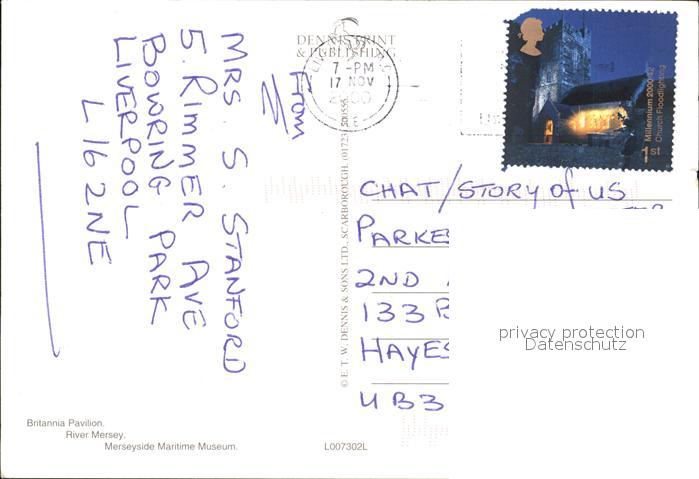 DENNIS PRINT
& PUBLISHING
7-PM
17 NOV
2000
From
MRS. S. STANFORD
5. RIMMER AVE
BOWRING PARK
LIVERPOOL
L16 2NE
© E. T. W. DENNIS & SONS LTD., SCARBOROUGH. (01723)
Millennium 2000/12
Church Floodlighting
1st
CHAT/STORY of US
PARKE
2ND
133 B
HAYES
UB3
privacy protection
Datenschutz
Britannia Pavilion.
River Mersey.
Merseyside Maritime Museum.
L007302L